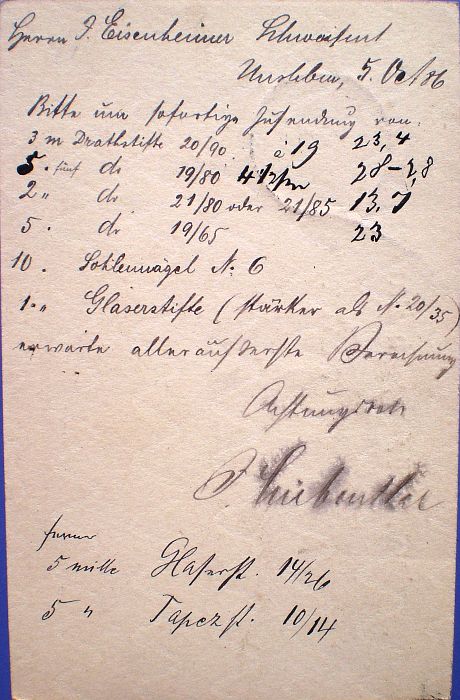 Herrn J. Eisenheimer Schweinfurt
Unsleben, 5. Oct 86
Bitte um sofortige Zusendung von:
3 m Drathstifte 20/90 à 19 23,4
5 . fünf do 19/80 28-2,8
2 " do 21/80 oder 21/85 13,7
5 . do 19/65 23
10 . Sohlennägel N. 6
1 . " Glaserstifte (stärker als N. 20/35)
erwarte alleräußerste Berechnung
Achtungsvoll
ferner
5 mille Glaserst. 14/26
5 " Tapezst. 10/14